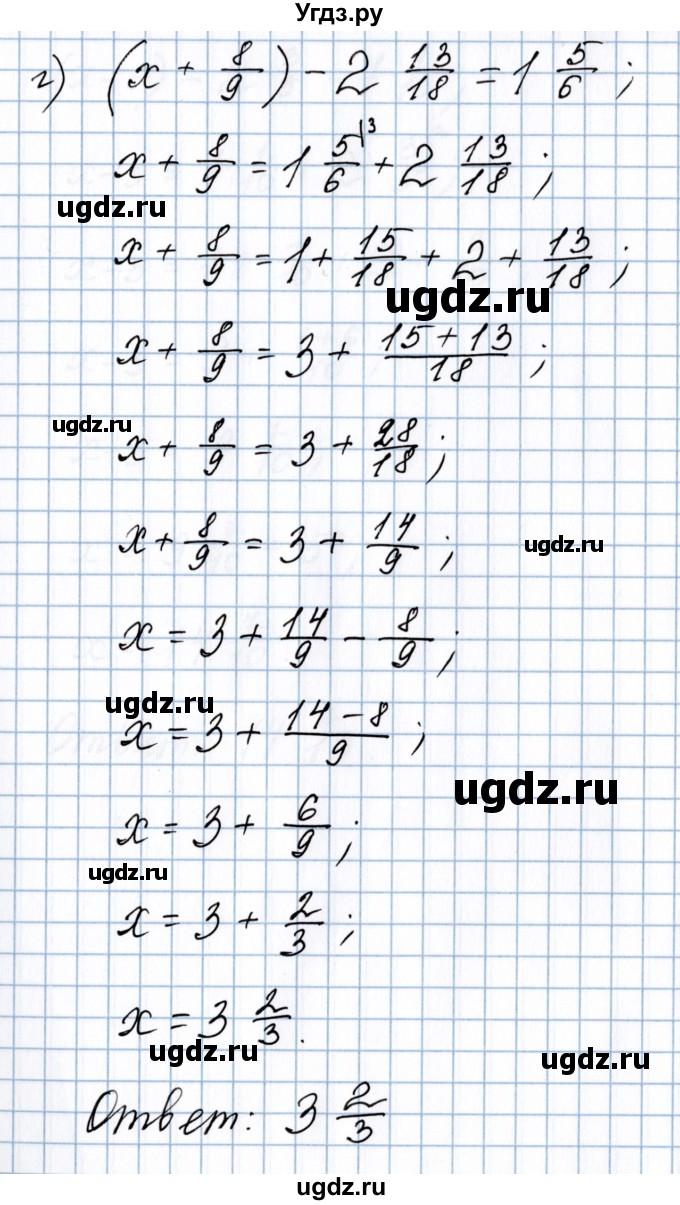 Угдз.ру
г) (x + 8/9) - 2 13/18 = 1 5/6 ;
x + 8/9 = 1 5/6 |3 + 2 13/18 ;
ugdz.ru
x + 8/9 = 1 + 15/18 + 2 + 13/18 ;
ugdz.ru
x + 8/9 = 3 + (15 + 13)/18 ;
ugdz.ru
x + 8/9 = 3 + 28/18 ;
x + 8/9 = 3 + 14/9 ;
ugdz.ru
x = 3 + 14/9 - 8/9 ;
ugdz.ru
x = 3 + (14 - 8)/9 ;
ugdz.ru
x = 3 + 6/9 ;
ugdz.ru
x = 3 + 2/3 ;
x = 3 2/3 .
ugdz.ru
ugdz.ru
Ответ: 3 2/3
ugdz.ru